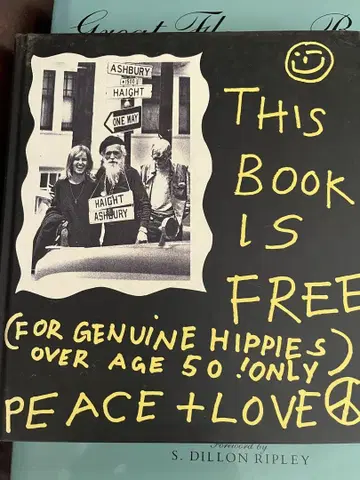 Great
ASHBURY
HAIGHT
ONE WAY
HAIGHT
ASHBURY
THIS
BOOK
IS
FREE
(FOR GENUINE HIPPIES)
OVER AGE 50 !ONLY
PEACE + LOVE
Foreword by
S. DILLON RIPLEY